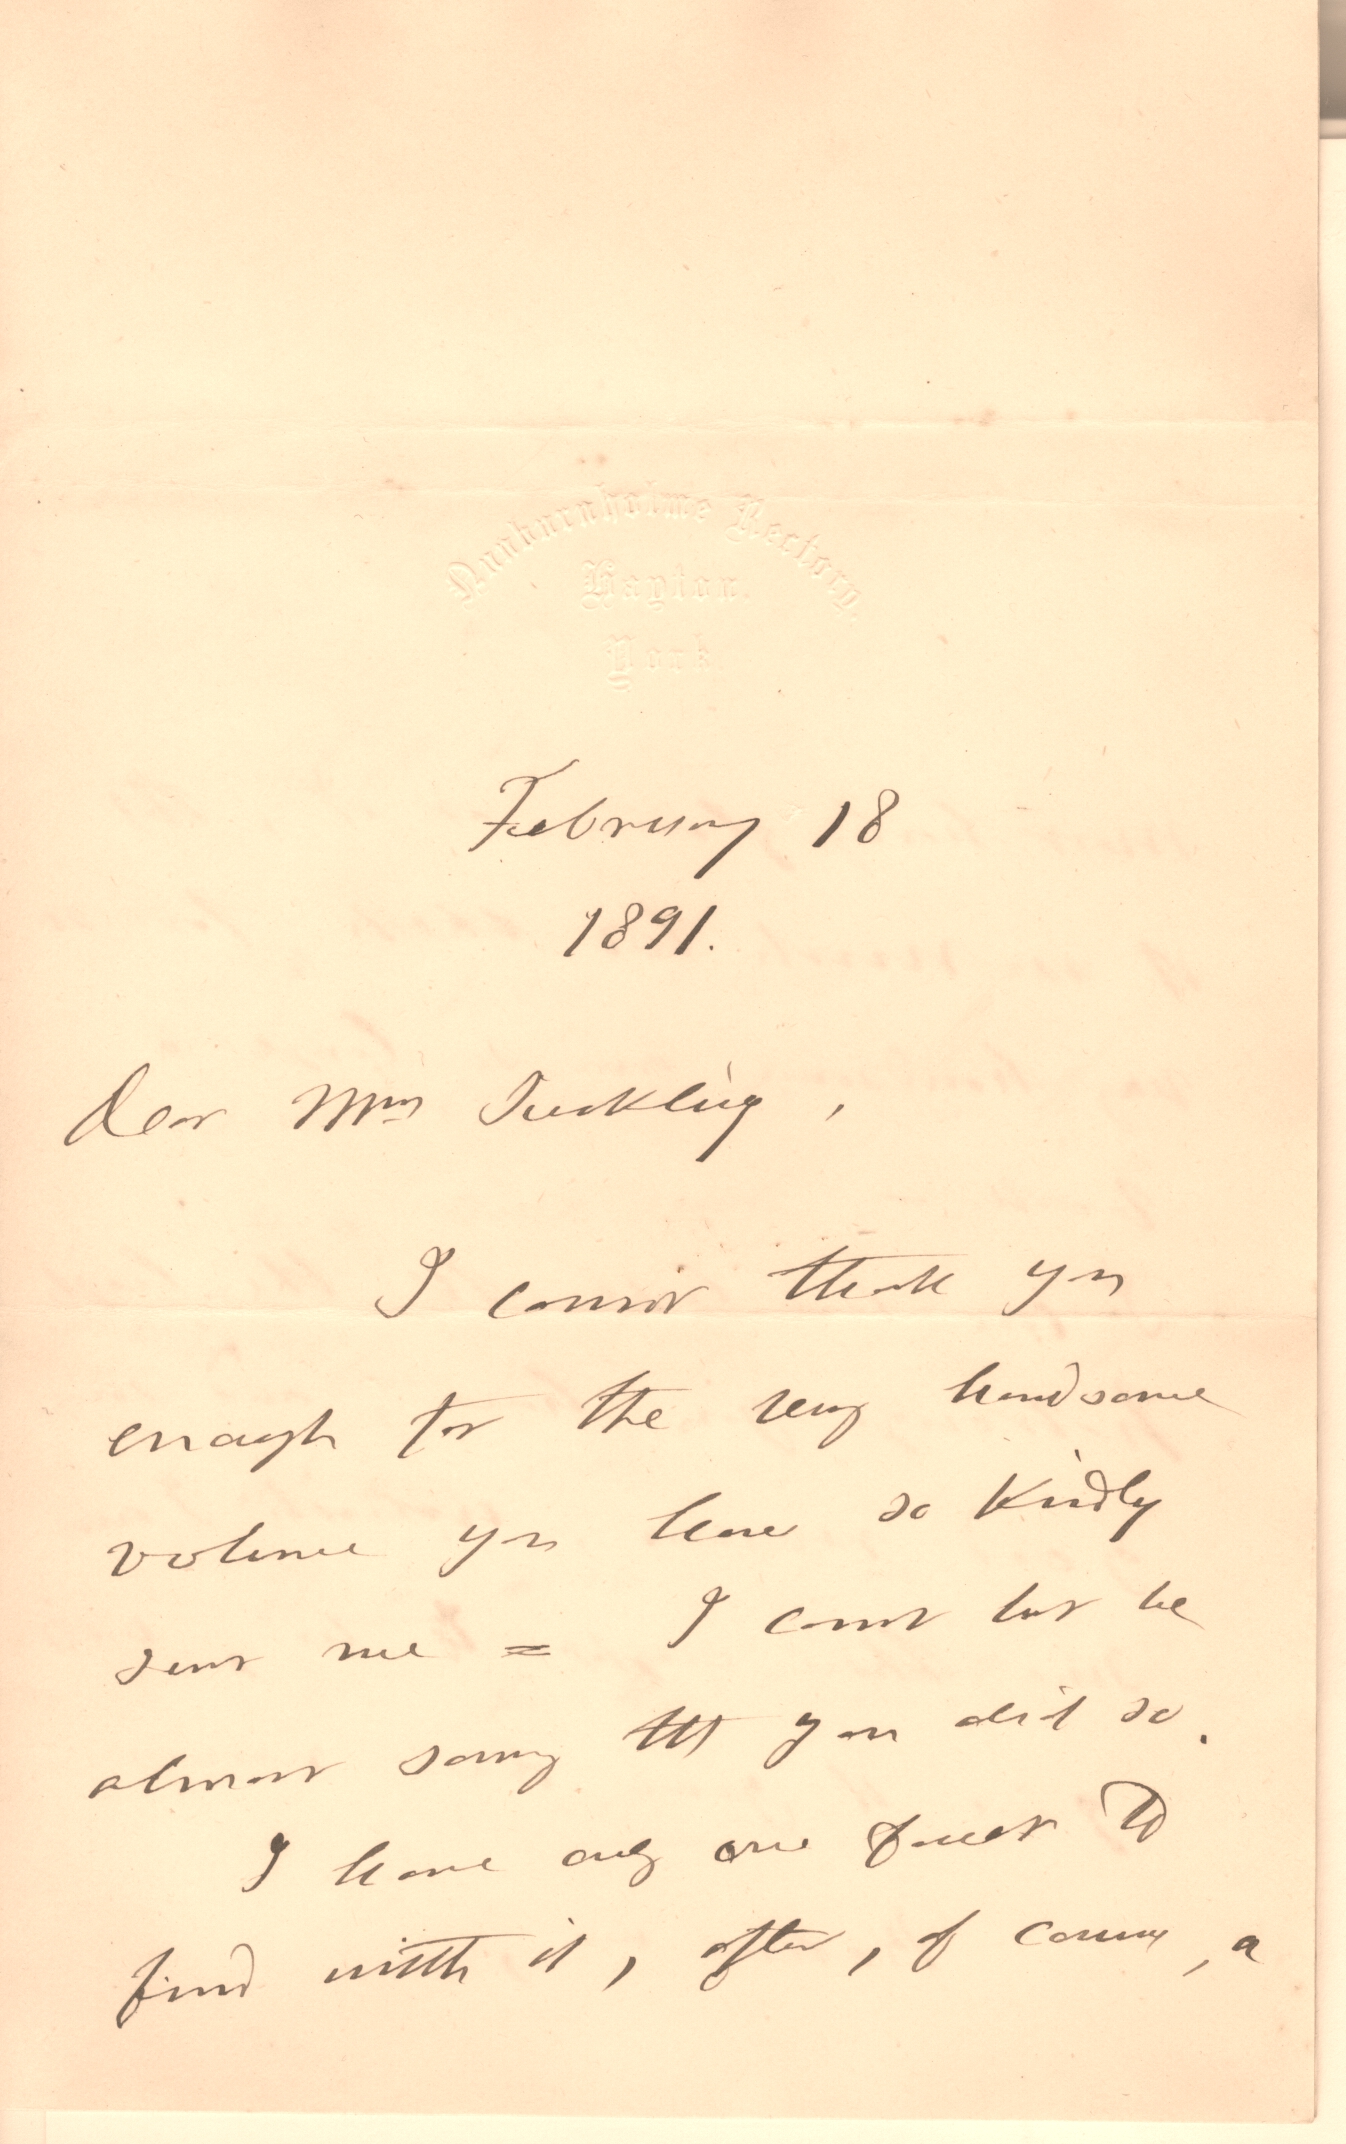 Nunburnholme Rectory,
Hayton.
York.
February 18
1891.
Dear Mrs Suckling,
I cannot thank you
enough for the very handsome
volume you have so kindly
sent me = I cannot but be
almost sorry tht you did so.
I have only one fault to
find with it, after, of course, a